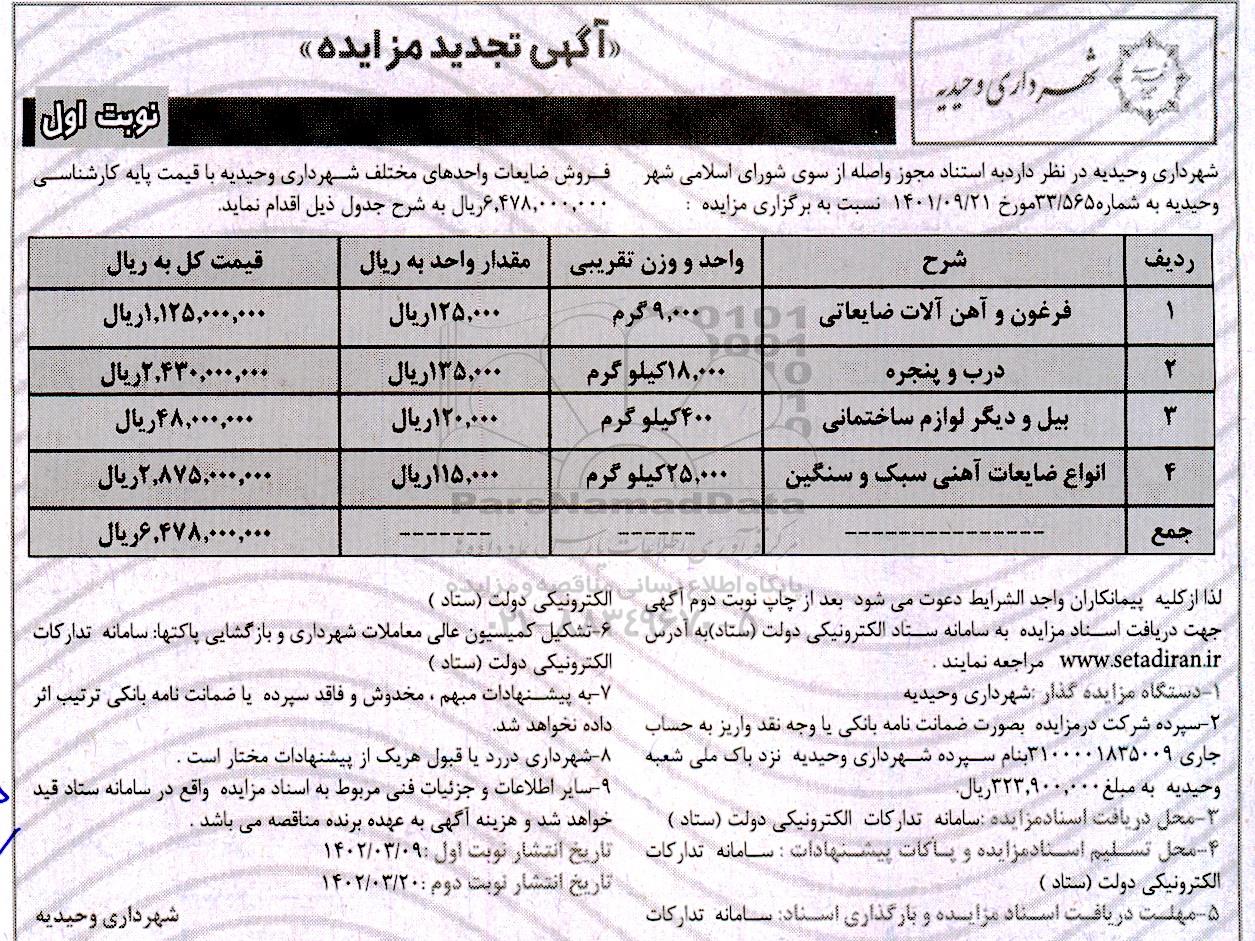 «آگهی تجدید مزایده»
شهرداری وحیدیه
نوبت اول
شهرداری وحیدیه در نظر داردبه استناد مجوز واصله از سوی شورای اسلامی شهر
وحیدیه به شماره۳۳/۵۶۵مورخ ۱۴۰۱/۰۹/۲۱ نسبت به برگزاری مزایده :
فروش ضایعات واحدهای مختلف شهرداری وحیدیه با قیمت پایه کارشناسی
۶,۴۷۸,۰۰۰,۰۰۰ریال به شرح جدول ذیل اقدام نماید.
ردیف شرح واحد و وزن تقریبی مقدار واحد به ریال قیمت کل به ریال
۱ فرغون و آهن آلات ضایعاتی ۹,۰۰۰گرم ۱۲۵,۰۰۰ریال ۱,۱۲۵,۰۰۰,۰۰۰ریال
۲ درب و پنجره ۱۸,۰۰۰کیلو گرم ۱۳۵,۰۰۰ریال ۲,۴۳۰,۰۰۰,۰۰۰ریال
۳ بیل و دیگر لوازم ساختمانی ۴۰۰کیلو گرم ۱۲۰,۰۰۰ریال ۴۸,۰۰۰,۰۰۰ریال
۴ انواع ضایعات آهنی سبک و سنگین ۲۵,۰۰۰کیلو گرم ۱۱۵,۰۰۰ریال ۲,۸۷۵,۰۰۰,۰۰۰ریال
جمع --------------- ------ ------- ۶,۴۷۸,۰۰۰,۰۰۰ریال
ParsNamadData
پایگاه اطلاع رسانی مناقصه و مزایده
لذا ازکلیه پیمانکاران واجد الشرایط دعوت می شود بعد از چاپ نوبت دوم آگهی
جهت دریافت اسناد مزایده به سامانه ستاد الکترونیکی دولت (ستاد)به آدرس
www.setadiran.ir مراجعه نمایند .
۱-دستگاه مزایده گذار :شهرداری وحیدیه
۲-سپرده شرکت درمزایده بصورت ضمانت نامه بانکی یا وجه نقد واریز به حساب
جاری ۳۱۰۰۰۰۱۸۳۵۰۰۹بنام سپرده شهرداری وحیدیه نزد باک ملی شعبه
وحیدیه به مبلغ۳۲۳,۹۰۰,۰۰۰ریال.
۳-محل دریافت اسنادمزایده :سامانه تدارکات الکترونیکی دولت (ستاد )
۴-محل تسلیم اسنادمزایده و پاکات پیشنهادات : سامانه تدارکات
الکترونیکی دولت (ستاد )
۵-مهلت دریافت اسناد مزایده و بارگذاری اسناد: سامانه تدارکات
الکترونیکی دولت (ستاد )
۶-تشکیل کمیسیون عالی معاملات شهرداری و بازگشایی پاکتها: سامانه تدارکات
الکترونیکی دولت (ستاد )
۷-به پیشنهادات مبهم ، مخدوش و فاقد سپرده یا ضمانت نامه بانکی ترتیب اثر
داده نخواهد شد.
۸-شهرداری دررد یا قبول هریک از پیشنهادات مختار است .
۹-سایر اطلاعات و جزئیات فنی مربوط به اسناد مزایده واقع در سامانه ستاد قید
خواهد شد و هزینه آگهی به عهده برنده مناقصه می باشد .
تاریخ انتشار نوبت اول :۱۴۰۲/۰۳/۰۹
تاریخ انتشار نوبت دوم :۱۴۰۲/۰۳/۲۰
شهرداری وحیدیه